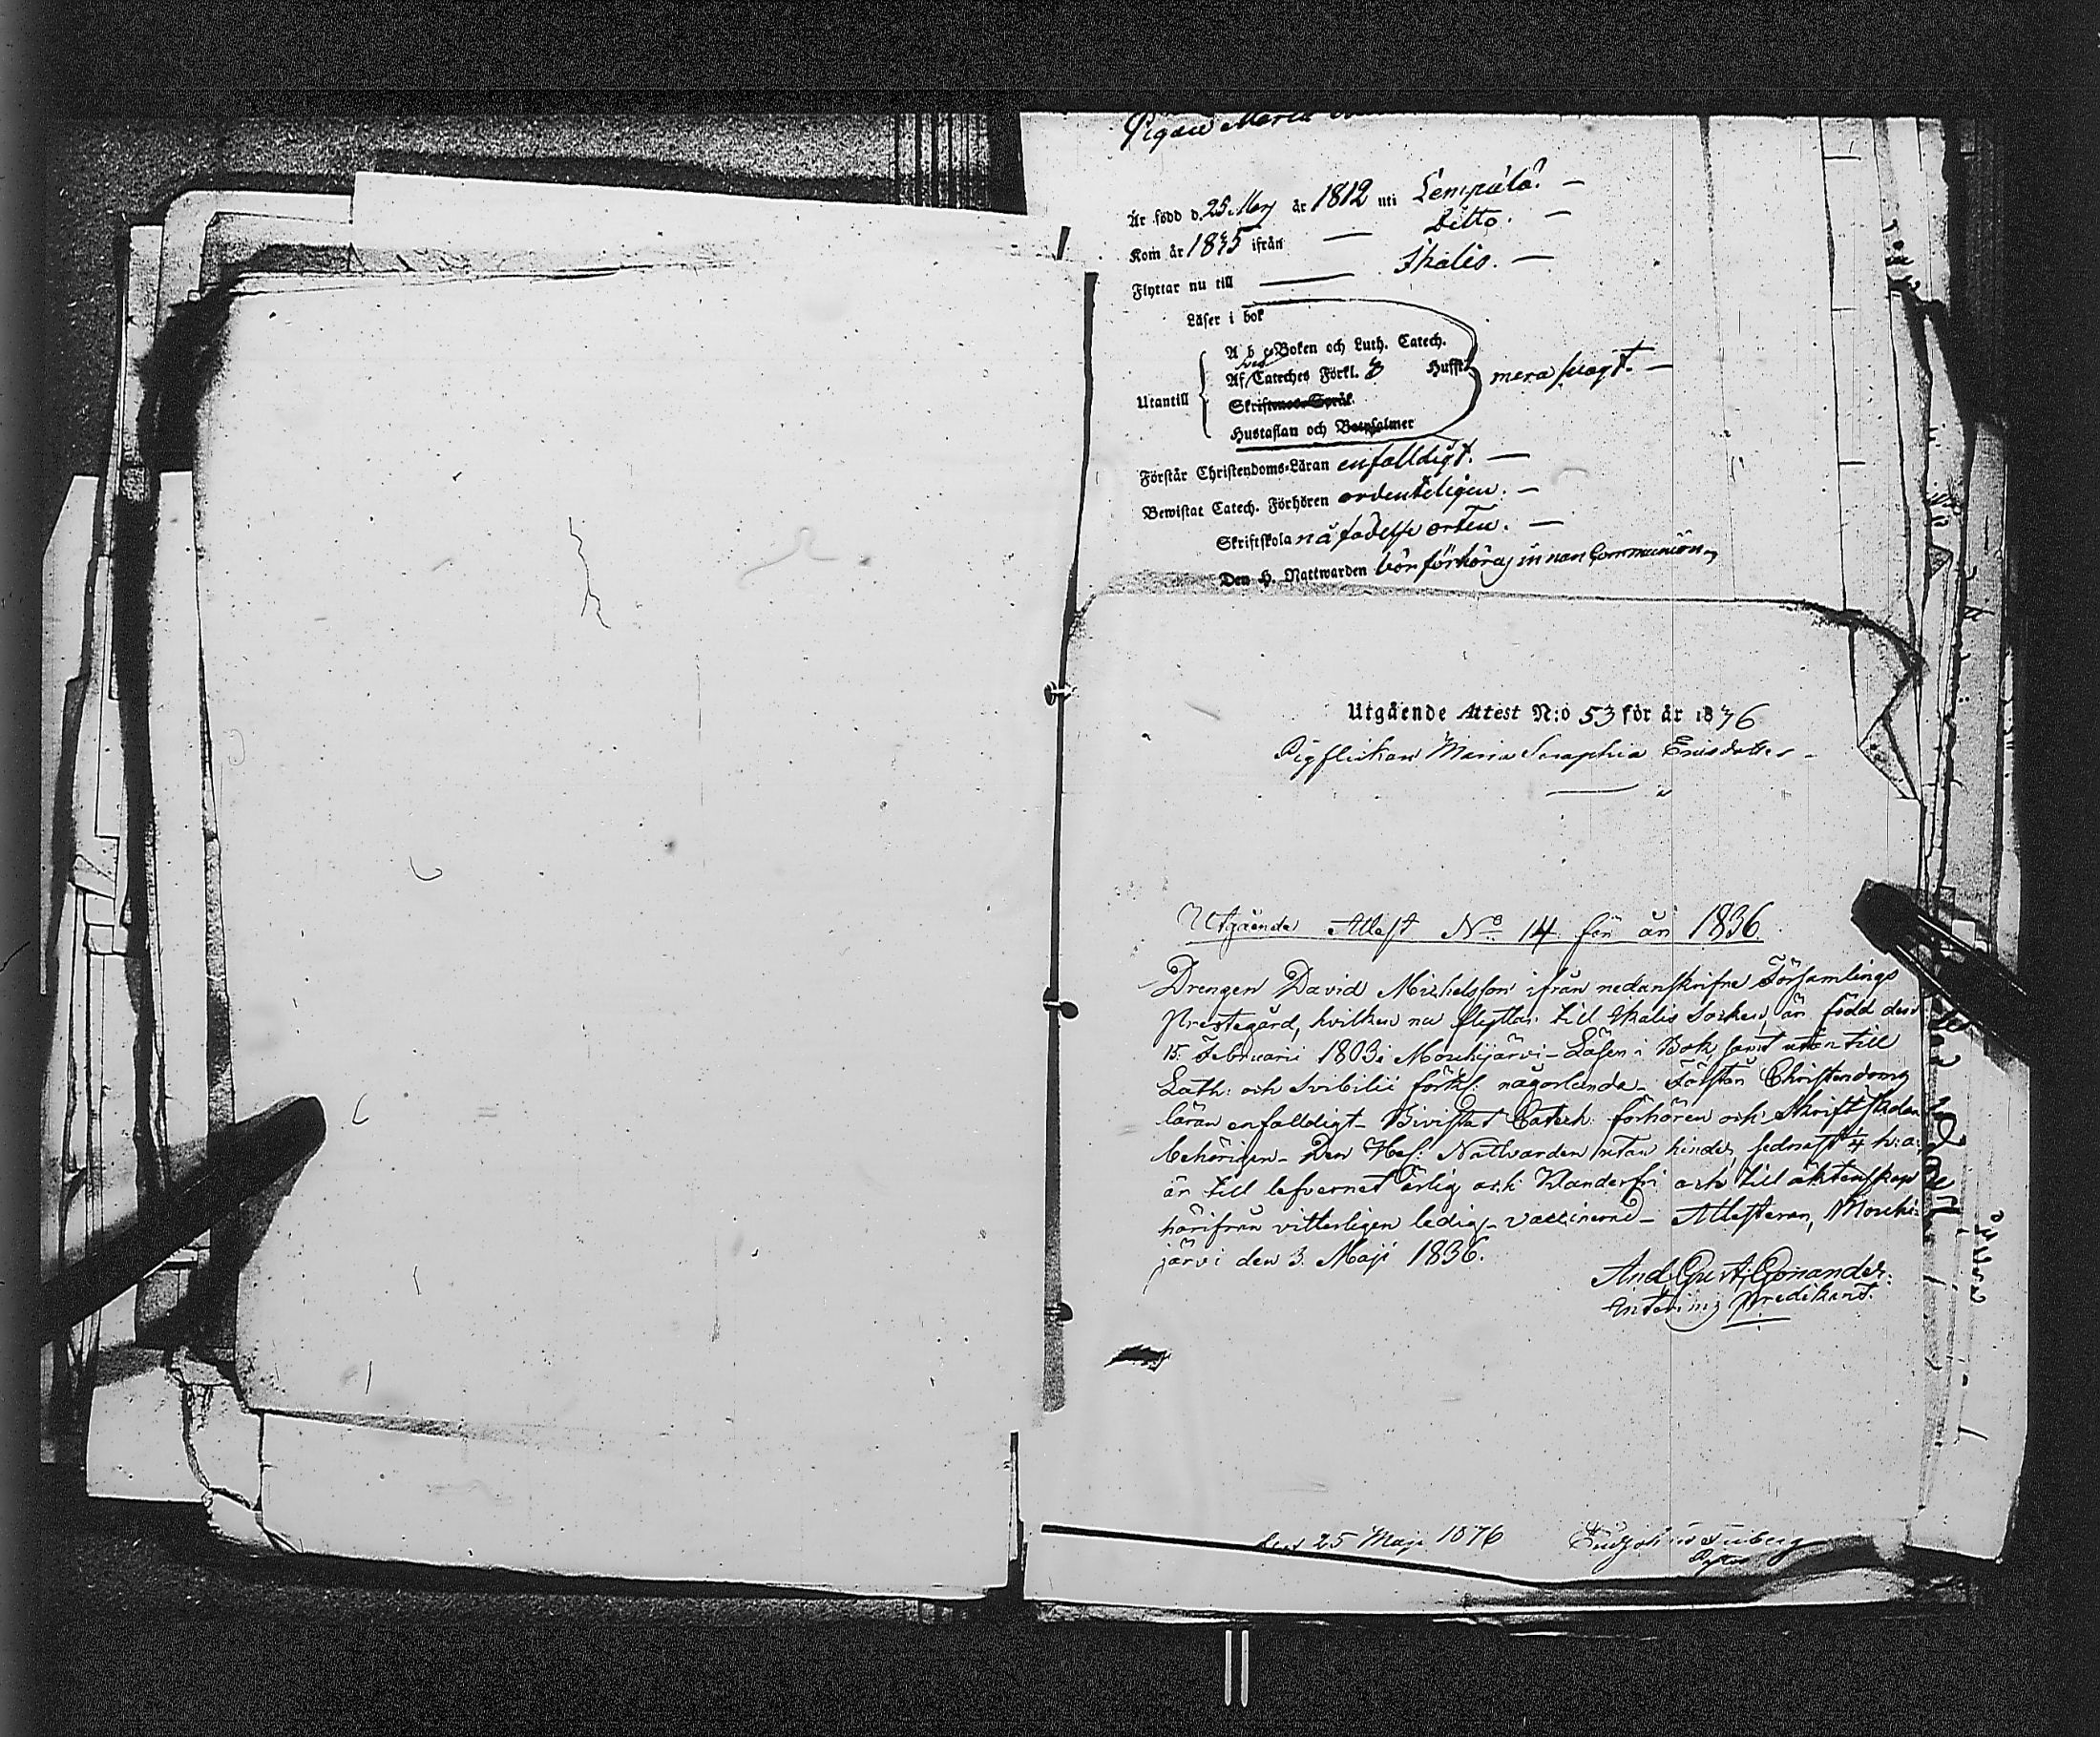 Pigan Maria
Är född d. 25 Maij år 1812 uti Lempälä. —
Kom år 1835 ifrån — Ditto. —
Flyttar nu till — Ikalis. —
Läser i bok
A b c-Boken och Luth. Catech.
Af Sveb Cateches Förkl. Husfl.
Utantill mera svagt. —
Skriftenes Språk
Hustaflan och Botpsalmer
Förstår Christendoms-Läran enfalldigt. —
Bewistat Catech. Förhören ordenteligen. —
Skriftskola på födelse orten. —
Den H. Nattwarden bör förhöras innan Communion
Utgående Attest N:o 53 för år 1836
Pigflickan Maria Seraphia Ericsdotter
Utgående Attest No 14 för år 1836
Drengen David Michelsson ifrån nedanskrifne Församlings
Prestegård, hvilken nu flyttar till Ikalis Socken, är född den
15. Februarii 1803 i Mouhijärvi – Läser i Bok samt utan till
Luth: och Svibilii förkl: någorlunda – Förstår Christendoms
läran enfalldigt – Bivistat Catech: förhören och Skriftskolan
behörigen – Den Hel: Nattvarden utan hinder, sednast 4 h: a:
är till lefvernet ärlig och Klanderfri och till äktenskap
härifrån vitterligen ledig – vaccinerad – Attesterar, Mouhi-
järvi den 3. Maji 1836.
And Gust: Gonander.
Interims Predikant.
den 25 Maji 1836